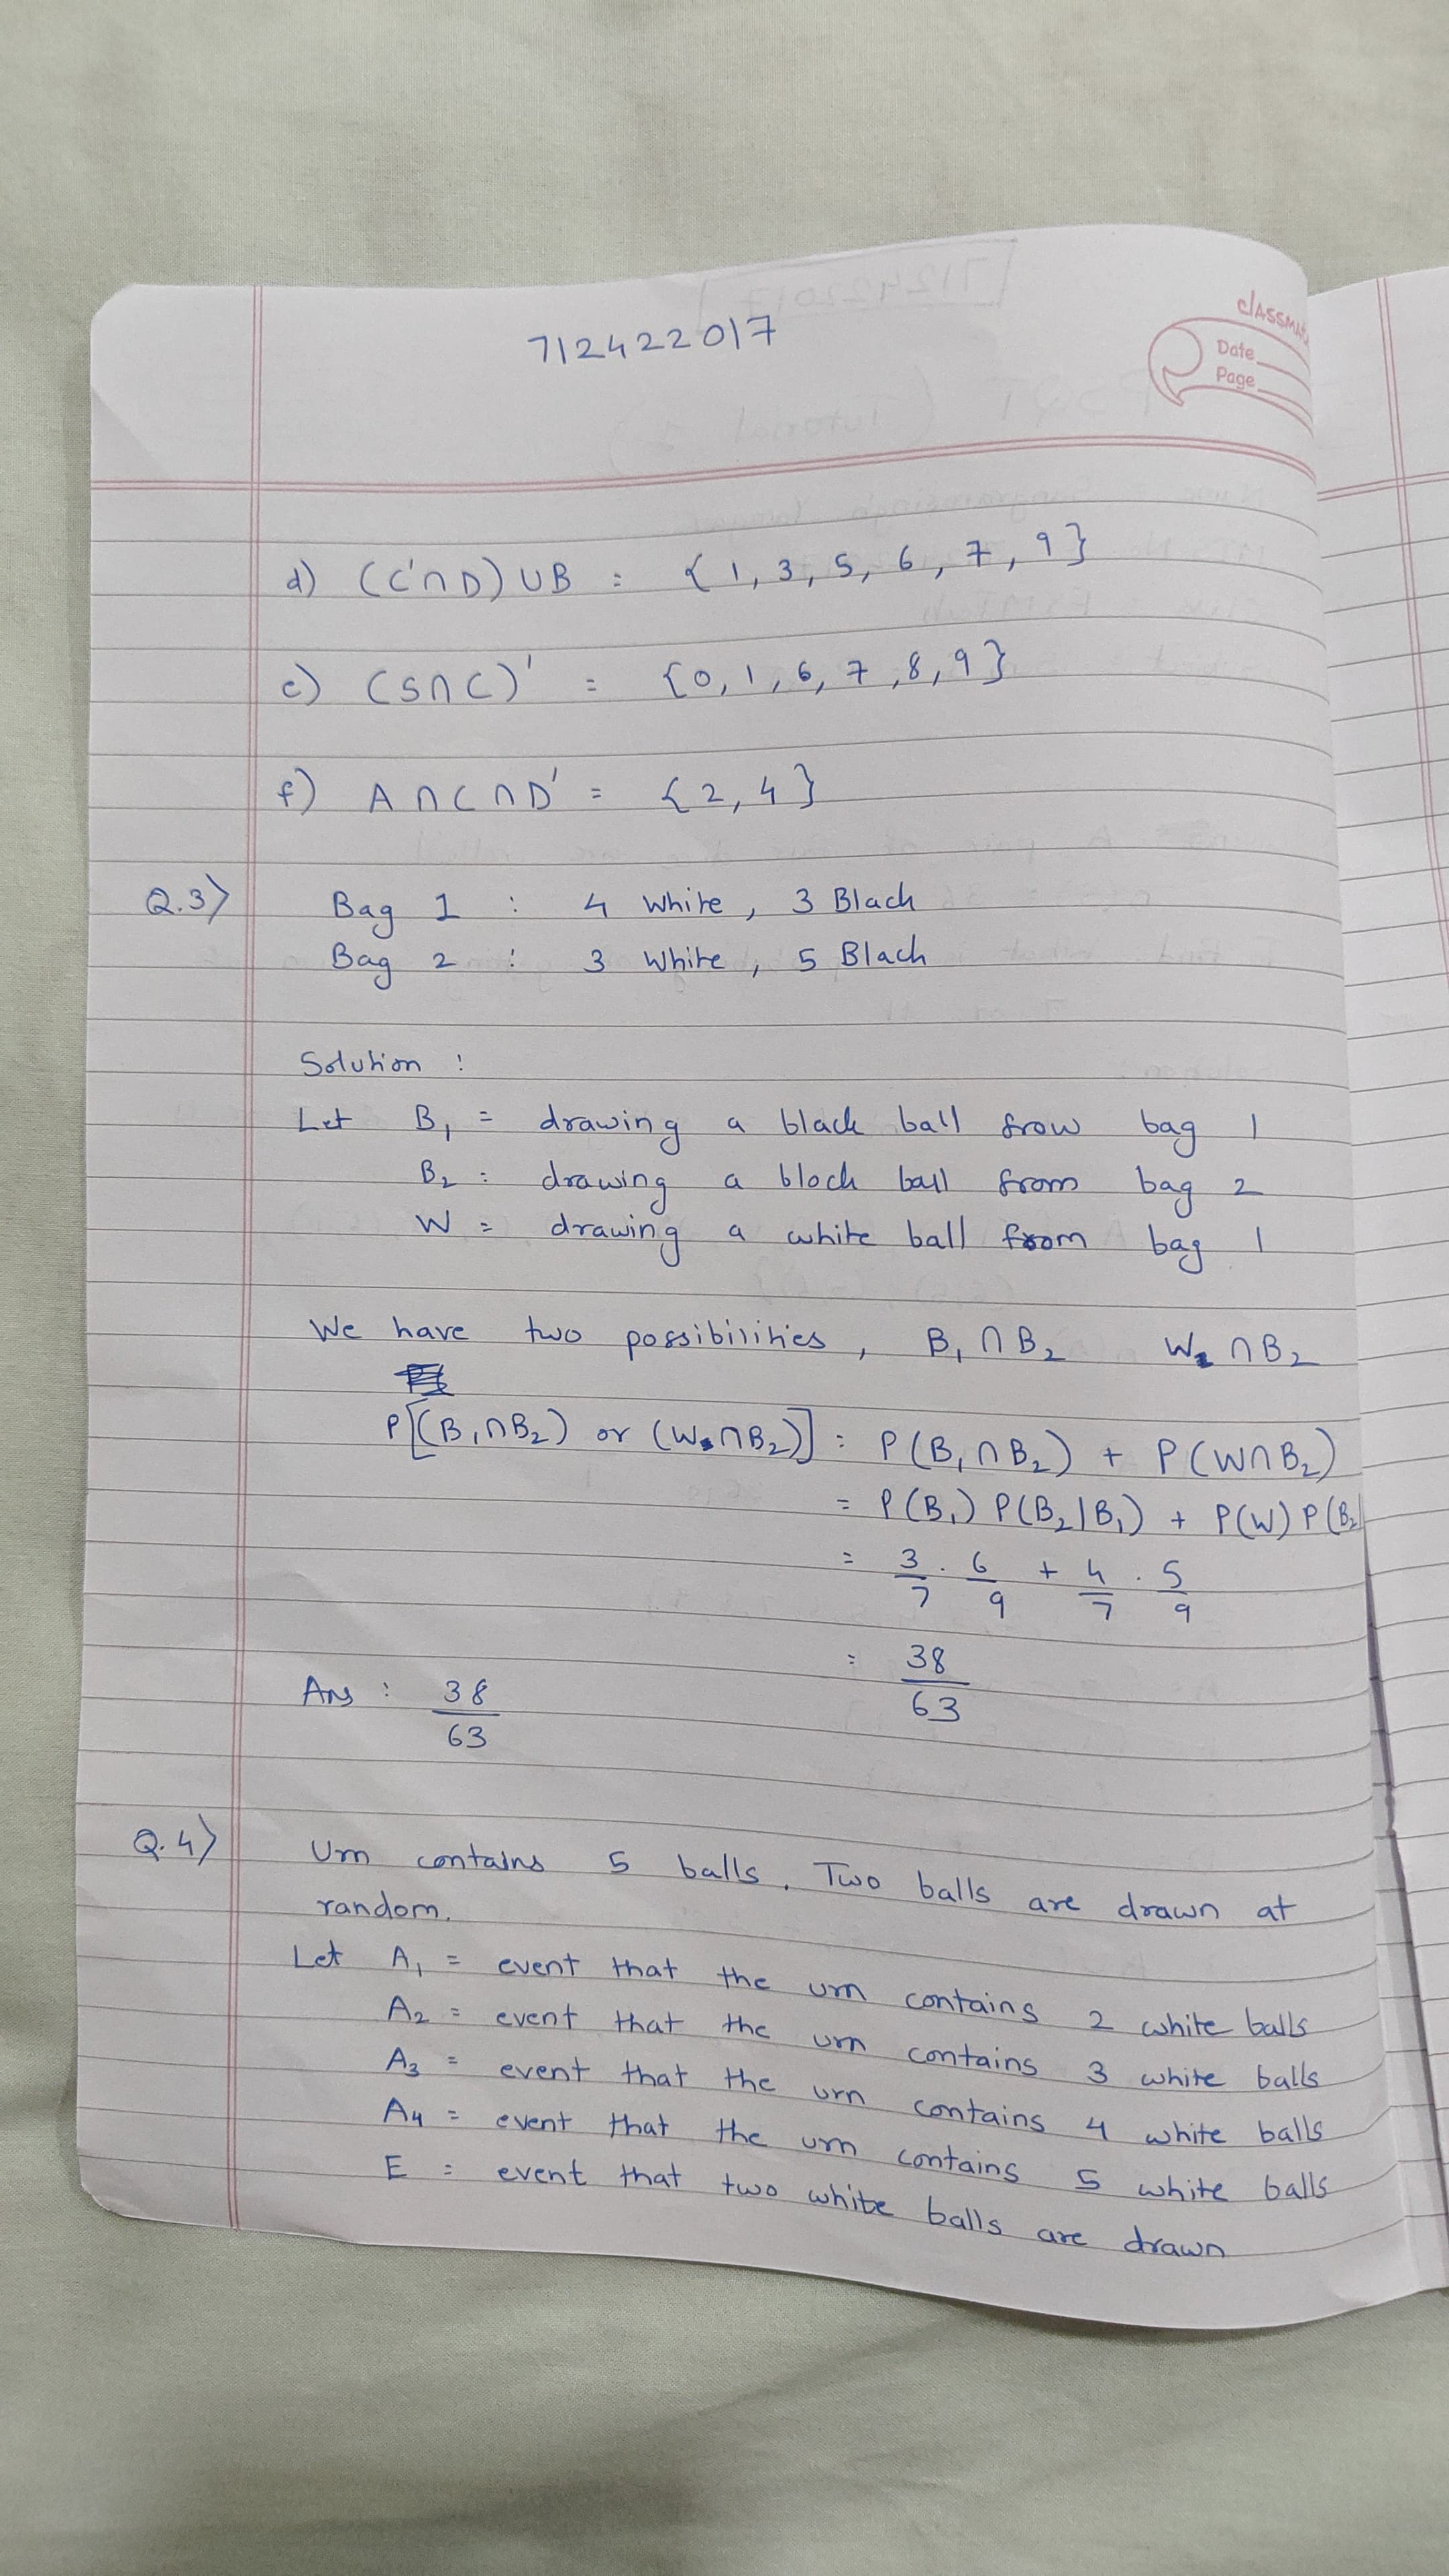 712422017
classmate
Date
Page
d) (C'∩D) ∪ B = {1, 3, 5, 6, 7, 9}
e) (S∩C)' = {0, 1, 6, 7, 8, 9}
f) A∩C∩D' = {2, 4}
Q.3) Bag 1 : 4 white, 3 Black
Bag 2 : 3 white, 5 Black
Solution :
Let B₁ = drawing a black ball from bag 1
B₂ = drawing a black ball from bag 2
W = drawing a white ball from bag 1
We have two possibilities, B₁∩B₂ W∩B₂
P[(B₁∩B₂) or (W∩B₂)] = P(B₁∩B₂) + P(W∩B₂)
= P(B₁) P(B₂|B₁) + P(W) P(B₂|
= 3/7 . 6/9 + 4/7 . 5/9
= 38/63
Ans : 38/63
Q.4) Urn contains 5 balls. Two balls are drawn at
random.
Let A₁ = event that the urn contains 2 white balls
A₂ = event that the urn contains 3 white balls
A₃ = event that the urn contains 4 white balls
A₄ = event that the urn contains 5 white balls
E = event that two white balls are drawn